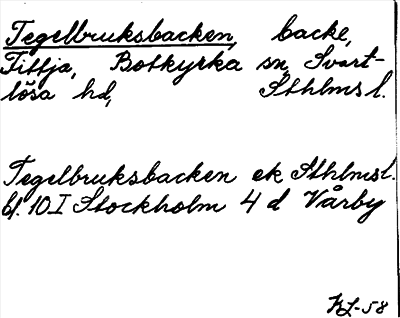 Tegelbruksbacken, backe,
Fittja, Botkyrka sn, Svart-
lösa hd, Sthlms l.
Tegelbruksbacken ek Sthlms l.
bl. 10 I Stockholm 4 d Vårby
KL-58